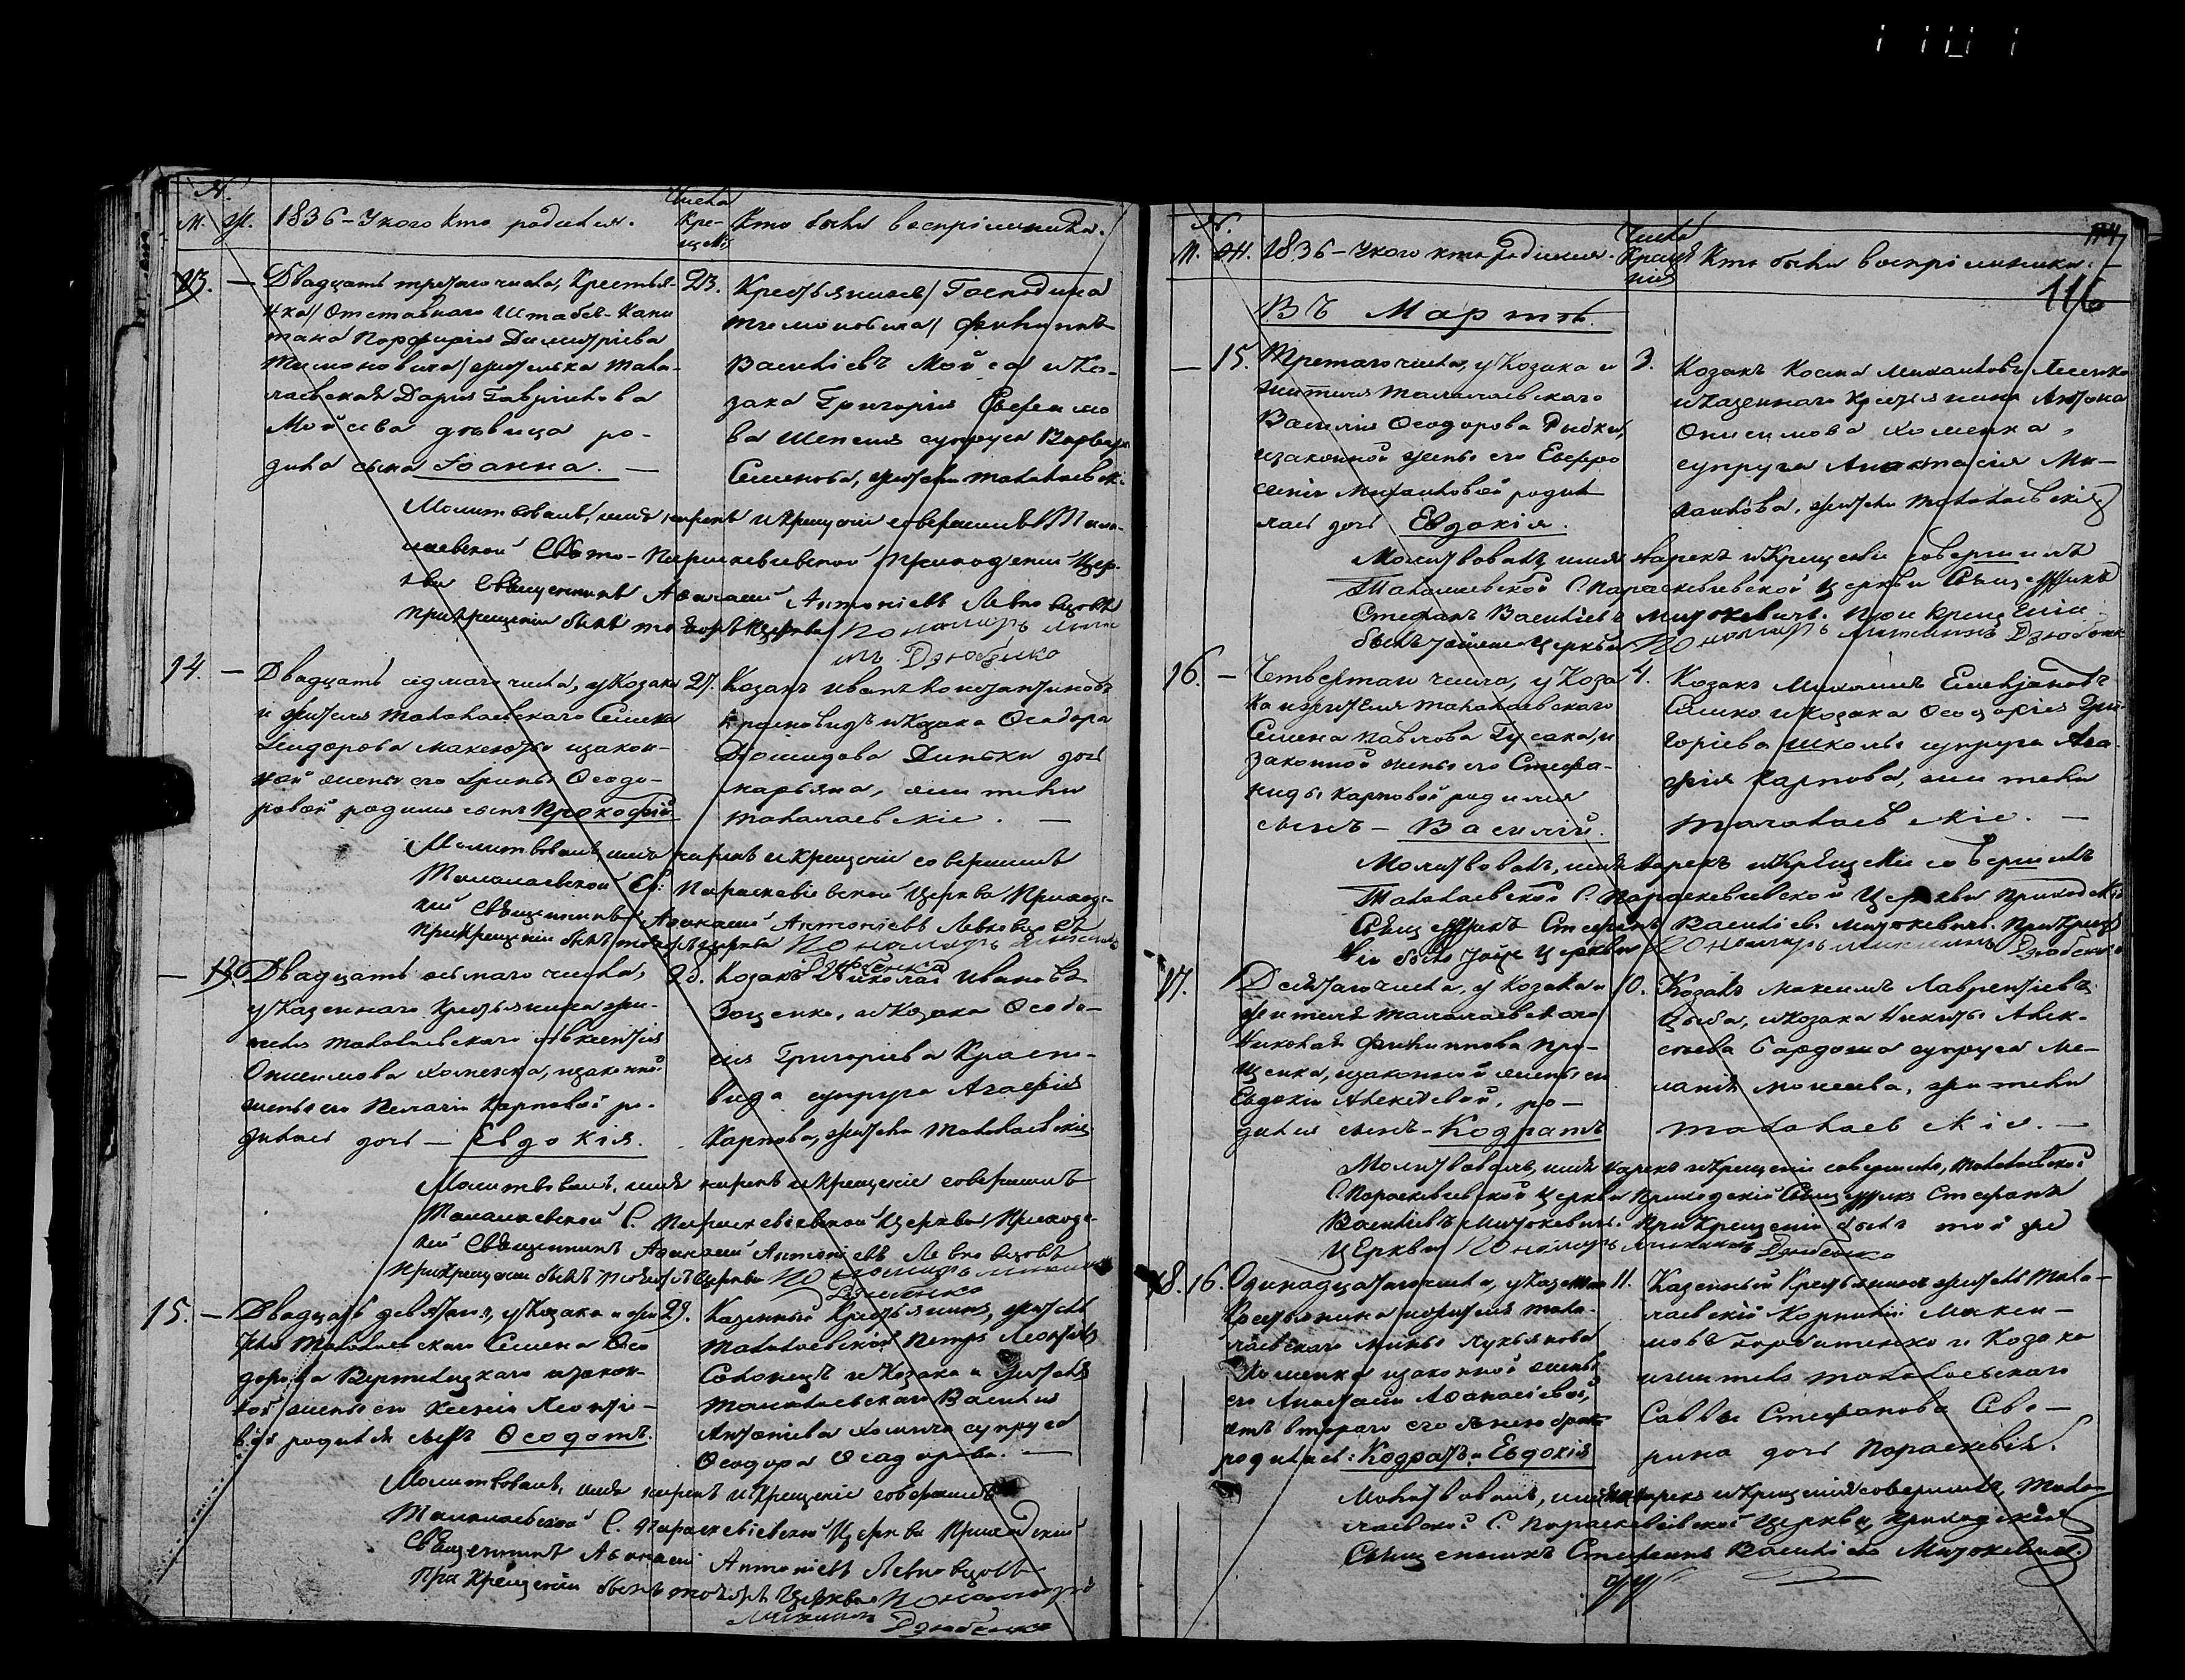 №.
М. Ж. 1836 – У кого кто родился. Числа Кре-
щенія Кто были воспріемники.
13. — Двадцать третяго числа, Крестья- 23.
нка / Отставнаго Штабсъ-Капи
тана Порфирія Димитріева
Тимоновича / жителька Тала-
лаевская Дарія Гаврілова
Мойсева девица ро-
дила сына Іоанна. —
Крестьянинъ / Господина
Тимоновича / Филиппъ
Василіевъ Мойса и Ко-
зака Григорія Ефимо
ва Шепеля супруга Варвара
Семенова, жители талалаевскі.
Молитвовалъ, имя нарекъ и крещеніе совершилъ Тала-
лаевской Свято-Параскевіевской Приходскій Цер-
кви Священникъ Афанасій Антоніевъ Левковцовъ
При крещеніи былъ тоя жъ Церкви Пономарь
Дзюбенко
14. — Двадцать седмаго числа, у Козака 27.
и жителя талалаевскаго Семена
Сидорова и закон-
ной жены его Ірины Феодо-
ровой родился сынъ Прокофій
Козакъ Иванъ Константиновъ
Красновидъ и Козака Феодора
Демидова дочь
Марьяна, жители
талалаевскіе. —
Молитвовалъ, имя нарекъ и крещеніе совершилъ
Талалаевской Св: Параскевіевской Церкви Приходс-
кій Священникъ Афанасій Антоніевъ Левковцовъ
При крещеніи былъ тояжъ Церкви Пономарь
Дзюбенко
— Двадцать осьмаго числа, 28.
у Казеннаго Крестьянина жи-
теля талалаевскаго Авксентія
Онисимова Хоменка, и законной
жены его Пелагіи Карповой ро-
дилась дочь — Евдокія.
Козакъ Николай Ивановъ
Зощенко, и Козака Феодо-
сія Григоріева Красно-
вида супруга Агафія
Карпова, жители талалаевскія
Молитвовалъ, имя нарекъ и крещеніе совершилъ
Талалаевской С. Параскевіевской Церкви Приходс-
кій Священникъ Афанасій Антоніевъ Левковцовъ
При крещеніи былъ тояжъ Церкви Пономарь
Дзюбенко
15. — Двадцать девятаго, у Козака и жи 29.
теля талалаевскаго Семена Фео
дорова Вертелецкаго и закон-
ной жены его Ксеніи Леонтіе-
вой родился сынъ Феодотъ.
Казенный Крестьянинъ, житель
талалаевскій Петръ Леонтіевъ
Солонецъ и Козака и жителя
талалаевскаго Василія
Антоніева супруга
Феодора Феодорова. —
Молитвовалъ, имя нарекъ и крещеніе совершилъ
Талалаевской С. Параскевіевской Церкви Приходскій
Священникъ Афанасій Антоніевъ Левковцовъ
При крещеніи былъ тояжъ Церкви Пономарь
Дзюбенко
№.
М. Ж. 1836 – У кого кто родился. Числа
Креще
нія Кто были воспріемники. —
114
116
Въ Мартѣ.
— 15. Третяго числа, у Козака и 3.
жителя талалаевскаго
Василія Феодорова Рыбки,
и законной жены его Евфро
синіи Михайловой роди
лась дочь Евдокія.
Козакъ Косма Михайловъ
и казеннаго крестьянина Антона
Онисимова Хоменка,
супруга Анастасія Ми-
хайлова, жители талалаевскія
Молитвовалъ, имя нарекъ и крещеніе совершилъ
Талалаевской С. Параскевіевской Церкви Священникъ
Стефанъ Василіевъ Митокевичъ. При крещеніи
былъ тойже Церкви Пономарь Дзюбенко
16. — Четвертаго числа, у Коза 4.
ка и жителя талалаевскаго
Семена Павлова Гусака, и
законной жены его Стефа-
ниды Карповой родился
сынъ — Василій.
Козакъ Михаилъ Емеліановъ
Сашко и Козака Феодосія Гри-
горіева супруга Ага-
фія Карпова, жители
талалаевскіе. —
Молитвовалъ, имя нарекъ и крещеніе совершилъ
Талалаевской С. Параскевіевской Церкви Приходскій
Священникъ Стефанъ Василіевъ Митокевичъ. При креще
ніи былъ тойже Церкви Пономарь Дзюбенко
17. Десятаго числа, у Козака и 10.
жителя талалаевскаго
Николая Филиппова Про-
ценка, и законной жены его
Евдокіи Алексіевой, ро-
дился сынъ – Кодратъ
Козакъ Максимъ Лаврентіевъ
Цыба, и козака Никиты Алек-
сіева супруга Ме-
ланія Моисеева, жители
талалаевскіе. —
Молитвовалъ, имя нарекъ и крещеніе совершилъ, талалаевской
С. Параскевіевской Церкви Приходскій Священникъ Стефанъ
Василіевъ Митокевичъ. При крещеніи былъ той же
Церкви Пономарь Дзюбенко
18. 16. Одинадцатаго числа, у Казеннаго 11.
Крестьянина и жителя тала-
лаевскаго Мины Лукьянова
Хоменка и законной жены
его Анастасіи Афанасіевой,
отъ втораго его съ нею брака
родились: Кодратъ и Евдокія
Казенный Крестьянинъ житель тала-
лаевскій Корнилій Макси-
мовъ Горбатенко и Козака
и жителя талалаевскаго
Саввы Стефанова Све-
рина дочь Параскевія.
Молитвовалъ, имя нарекъ и крещенія совершилъ, тала-
лаевской С. Параскевіевской Церкви, Приходскій
Священникъ Стефанъ Василіевъ Митокевичъ.